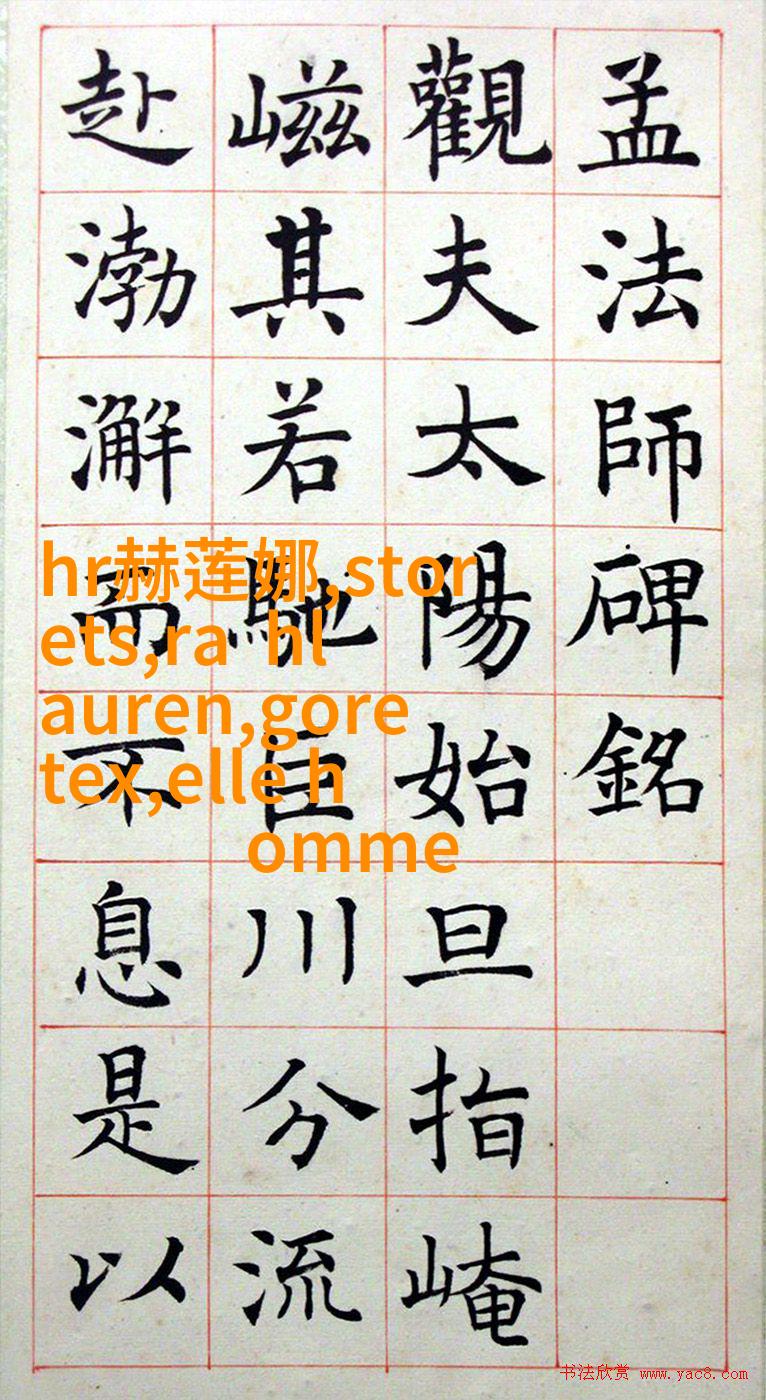 孟法師碑銘
觀夫太陽始旦指崦
嵫其若馳巨川分流
赴渤澥而不息是以
hr赫莲娜,stor
ets,ra hl
auren,gore
tex,elle h
omme
书法欣赏 www.yac8.com